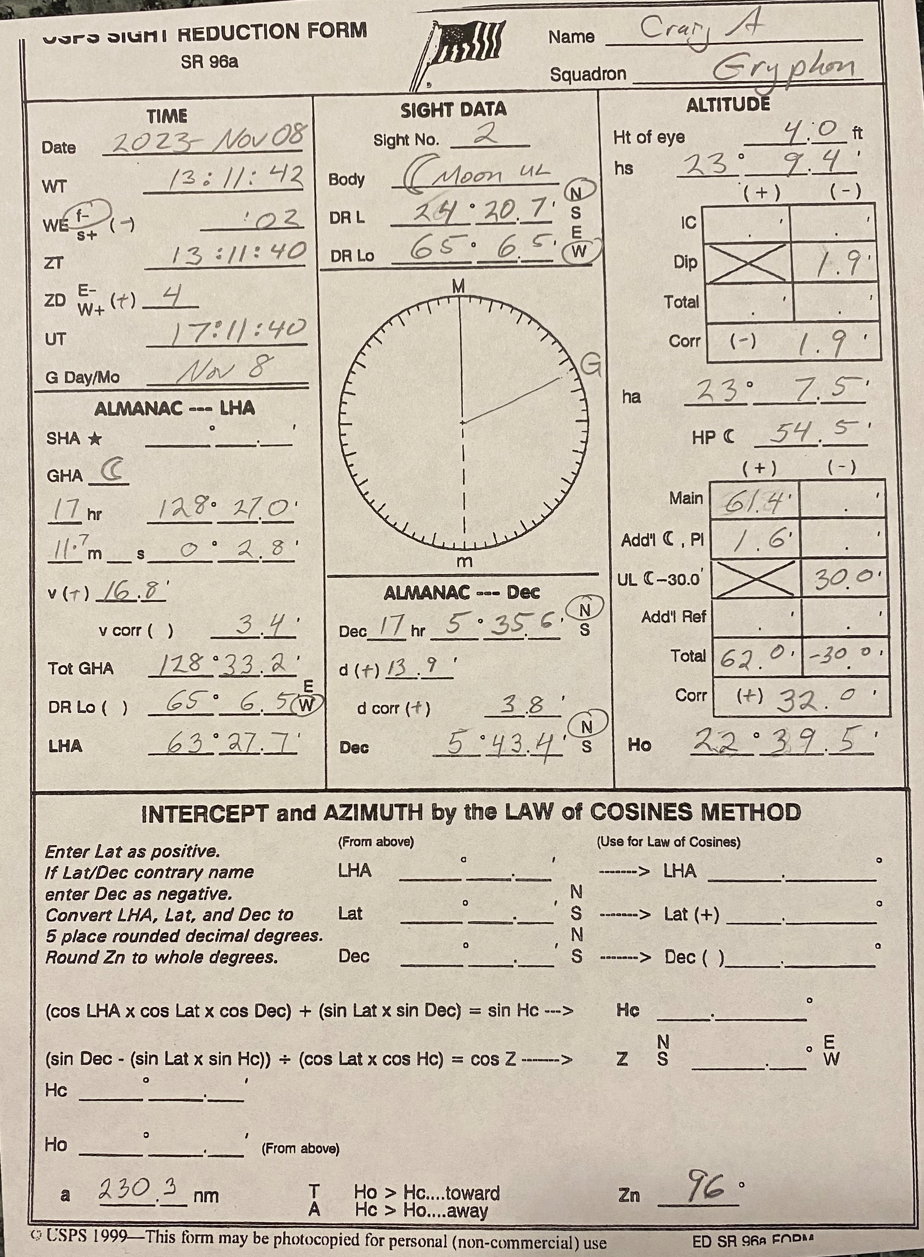 USPS SIGHT REDUCTION FORM
SR 96a
Name Craig A
Squadron Gryphon
TIME
Date 2023-Nov 08
WT 13:11:42
WE f- s+ (-) '02
ZT 13:11:40
ZD E- W+ (+) 4
UT 17:11:40
G Day/Mo Nov 8
ALMANAC --- LHA
SHA ★ ° . '
GHA ☾
17 hr 128° 27.0'
11.7 m s 0° 2.8'
v (+) 16.8'
v corr ( ) 3.4'
Tot GHA 128° 33.2'
DR Lo ( ) 65° 6.5' E W
LHA 63° 27.7'
SIGHT DATA
Sight No. 2
Body ☾ Moon UL
DR L 24° 20.7' N S
DR Lo 65° 6.5' E W
M
G
m
ALMANAC --- Dec
Dec 17 hr 5° 35.6' N S
d (+) 13.9'
d corr (+) 3.8'
Dec 5° 43.4' N S
ALTITUDE
Ht of eye 4.0 ft
hs 23° 9.4'
(+) (-)
IC . ' . '
Dip 1.9'
Total . ' . '
Corr (-) 1.9'
ha 23° 7.5'
HP ☾ 54.5'
(+) (-)
Main 61.4' . '
Add'l ☾, Pl 1.6' . '
UL ☾-30.0' 30.0'
Add'l Ref . ' . '
Total 62.0' -30.0'
Corr (+) 32.0'
Ho 22° 39.5'
INTERCEPT and AZIMUTH by the LAW of COSINES METHOD
Enter Lat as positive.
If Lat/Dec contrary name
enter Dec as negative.
Convert LHA, Lat, and Dec to
5 place rounded decimal degrees.
Round Zn to whole degrees.
(From above) (Use for Law of Cosines)
LHA ° . ' -----> LHA . °
Lat ° . ' N S -----> Lat (+) . °
Dec ° . ' N S -----> Dec ( ) . °
(cos LHA x cos Lat x cos Dec) + (sin Lat x sin Dec) = sin Hc ---> Hc . °
(sin Dec - (sin Lat x sin Hc)) ÷ (cos Lat x cos Hc) = cos Z -----> Z N S . ° E W
Hc ° . '
Ho ° . ' (From above)
a 230.3 nm T Ho > Hc....toward Zn 96°
A Hc > Ho....away
© USPS 1999—This form may be photocopied for personal (non-commercial) use ED SR 96a FORM